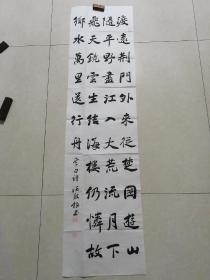 渡遠荊門外來從楚國遊山
隨平野盡江入大荒流月下
飛天鏡雲生結海樓仍憐故
鄉水萬里送行舟 李白詩